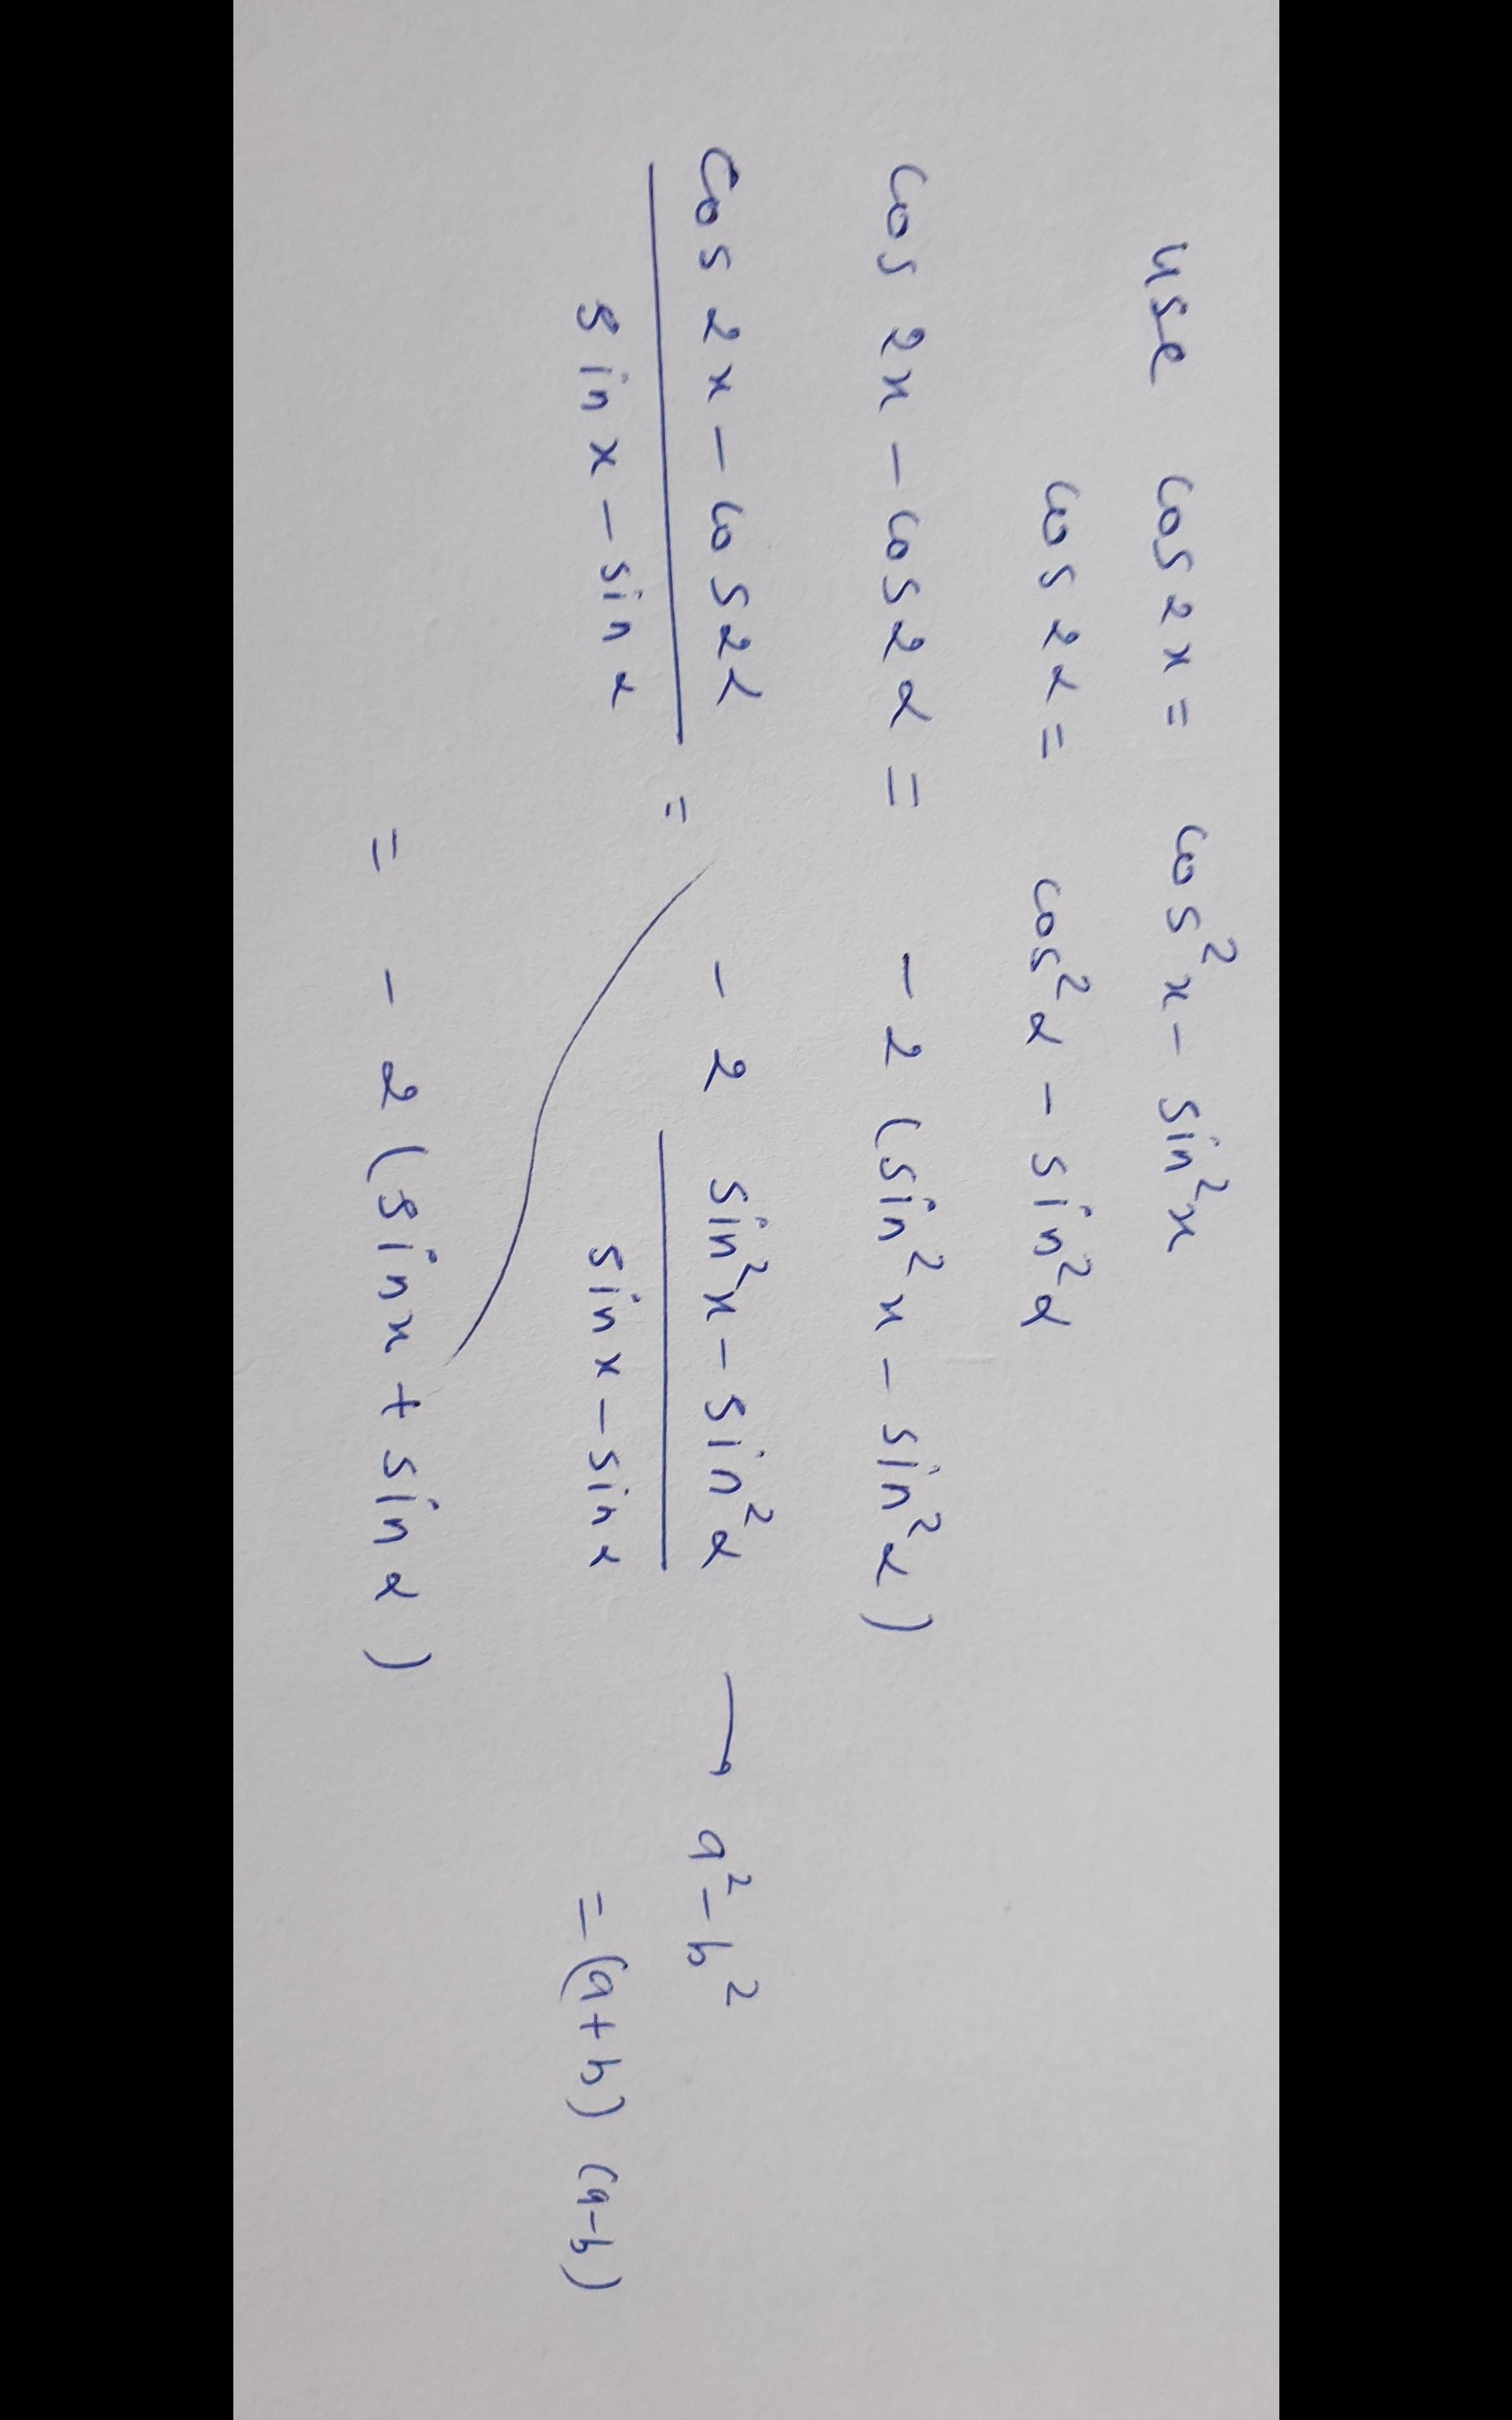 use cos 2x = cos²x - sin²x
cos 2α = cos²α - sin²α
cos 2x - cos 2α = - 2 (sin²x - sin²α)
cos 2x - cos 2α / sin x - sin α = - 2 sin²x - sin²α / sin x - sin α → a² - b²
= (a + b) (a - b)
= - 2 (sin x + sin α)